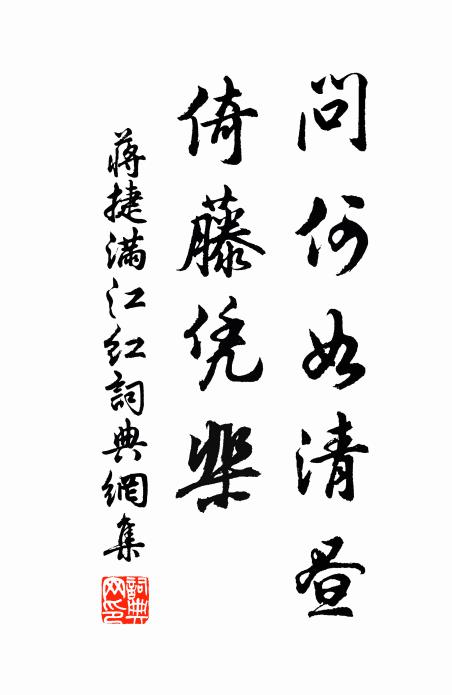 問何如清晝
倚藤凭槊
蔣捷滿江红詞典網集
詞典网印